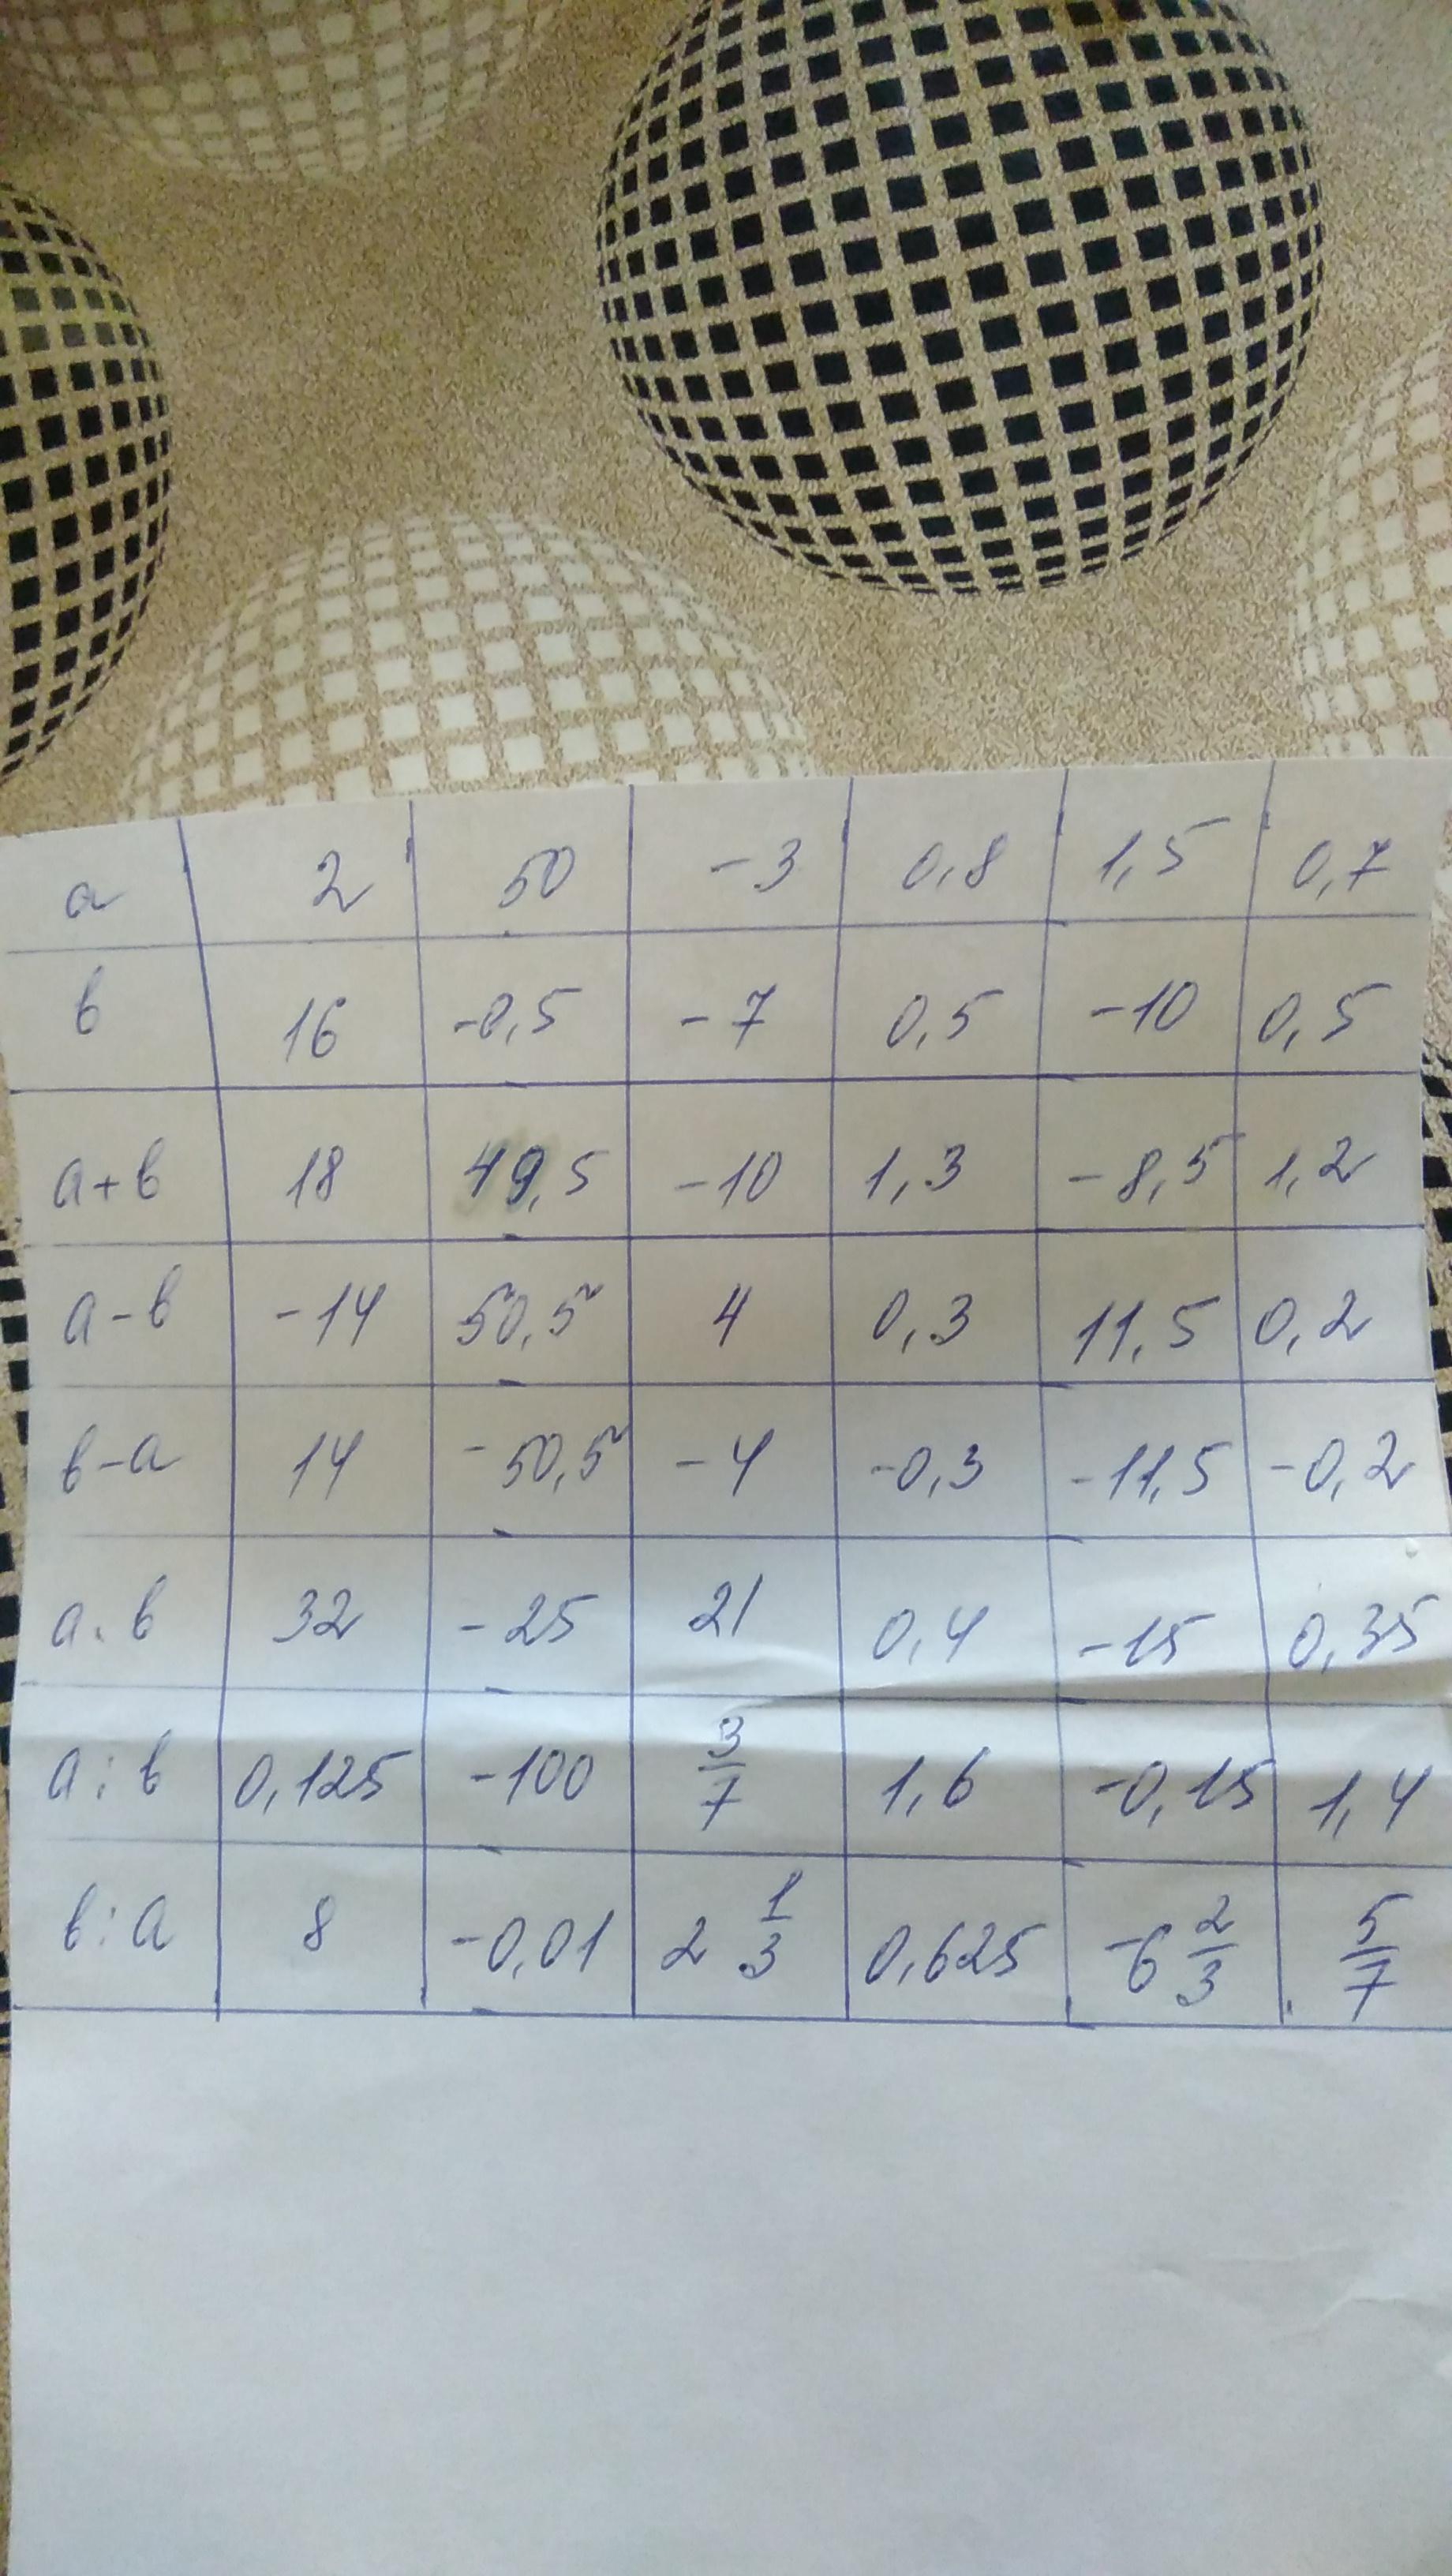 а 2 50 -3 0,8 1,5 0,7
в 16 -0,5 -7 0,5 -10 0,5
а+в 18 49,5 -10 1,3 -8,5 1,2
а-в -14 50,5 4 0,3 11,5 0,2
в-а 14 -50,5 -4 -0,3 -11,5 -0,2
а.в 32 -25 21 0,4 -15 0,35
а:в 0,125 -100 3/7 1,6 -0,15 1,4
в:а 8 -0,01 2 1/3 0,625 -6 2/3 5/7